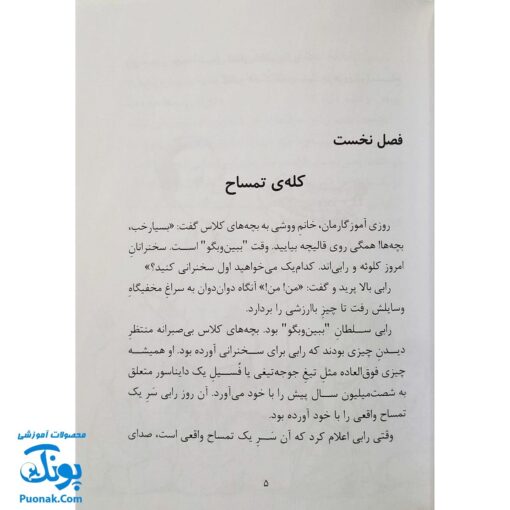 فصل نخست
کله‌ی تمساح
روزی آموزگارمان، خانم ووشی به بچه‌های کلاس گفت: «بسیارخب،
بچه‌ها! همگی روی قالیچه بیایید. وقت "ببین‌وبگو" است. سخنرانانِ
امروز کلوئه و رابی‌اند. کدام‌یک می‌خواهید اول سخنرانی کنید؟»
رابی بالا پرید و گفت: «من! من!» آنگاه دوان‌دوان به سراغِ مخفیگاهِ
وسایلش رفت تا چیزِ باارزشی را بردارد.
رابی سلطانِ "ببین‌وبگو" بود. بچه‌های کلاس بی‌صبرانه منتظرِ
دیدنِ چیزی بودند که رابی برای سخنرانی آورده بود. او همیشه
چیزی فوق‌العاده مثلِ تیغِ جوجه‌تیغی یا فُسیلِ یک دایناسور متعلق
به شصت‌میلیون سال پیش را با خود می‌آورد. آن روز رابی سَرِ یک
تمساح واقعی را با خود آورده بود.
وقتی رابی اعلام کرد که آن سَرِ یک تمساح واقعی است، صدای
۵
محصولات آموزشی
پونک
Puonak.Com